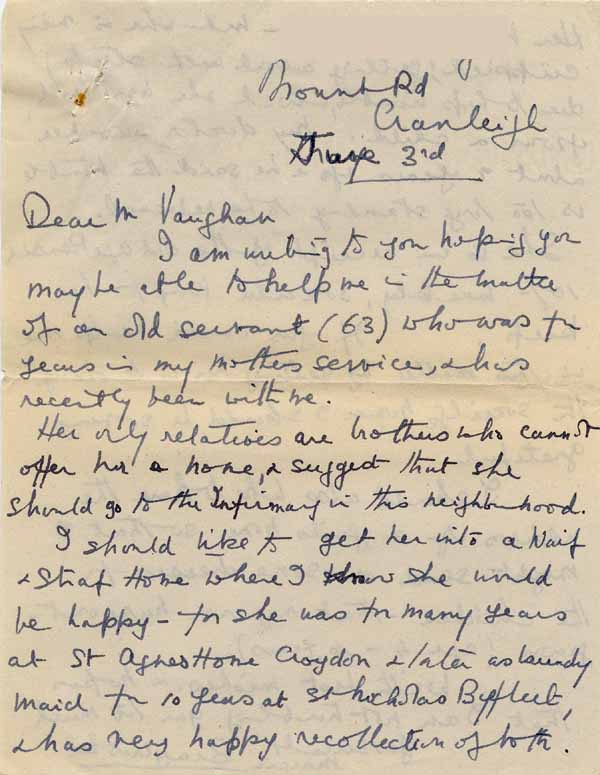 Mount Rd
Cranleigh
3rd
Dear Mr Vaughan
I am writing to you hoping you
maybe able to help me in the matter
of an old servant (63) who was for
years in my mothers service, & has
recently been with me.
Her only relatives are brothers who cannot
offer her a home, & suggest that she
should go to the Infirmary in this neighbourhood.
I should like to get her into a Waif
& Stray Home where I know she would
be happy - for she was for many years
at St Agnes Home Croydon & later as laundry
maid for 10 years at St Nicholas Byfleet,
& has very happy recollection of both.